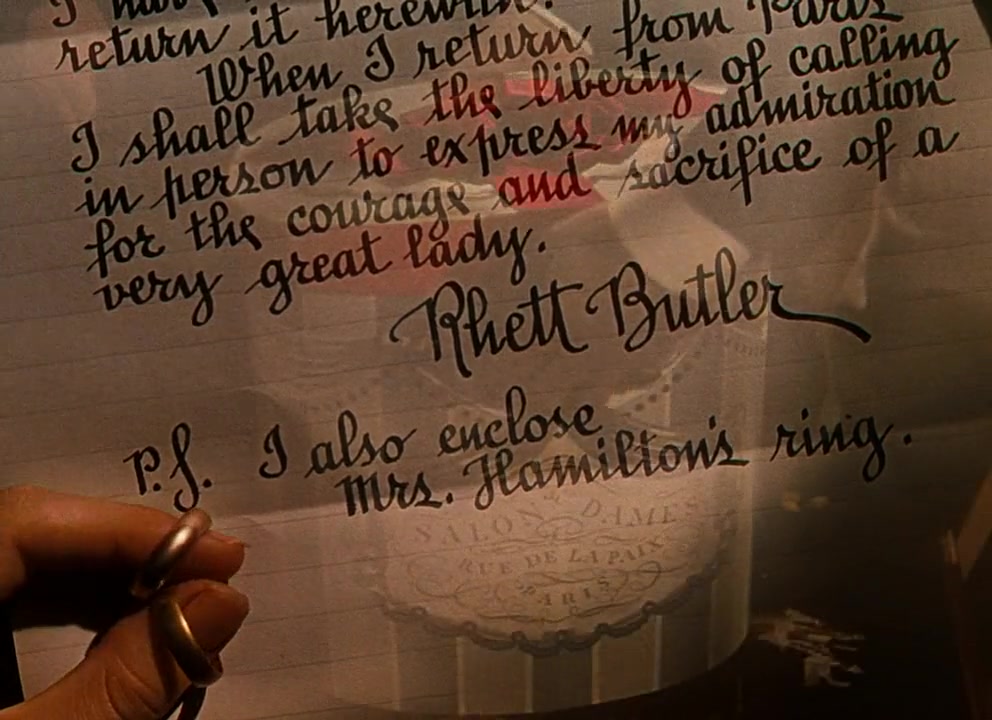 return it herewith.
When I return from Paris
I shall take the liberty of calling
in person to express my admiration
for the courage and sacrifice of a
very great lady.
Rhett Butler
P.S. I also enclose
Mrs. Hamilton's ring.
SALON DAMES
RUE DE LA PAIX
PARIS